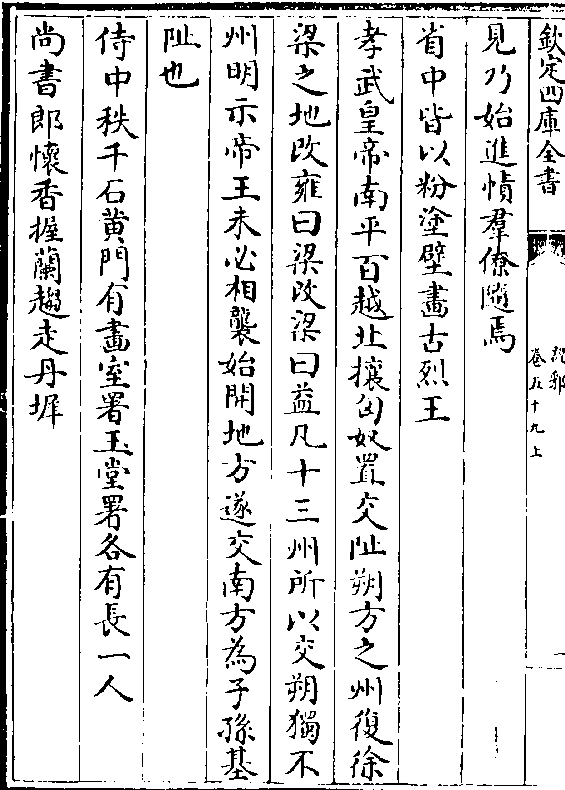 欽定四庫全書
說郛
卷五十九上
見乃始進幘羣僚隨焉
省中皆以粉塗壁畫古烈王
孝武皇帝南平百越北攘匈奴置交阯朔方之州復徐
梁之地改雍曰梁改梁曰益凡十三州所以交朔獨不
州明示帝王未必相襲始開地方遂交南方為子孫基
阯也
侍中秩千石黄門有畫室署玉堂署各有長一人
尚書郎懷香握蘭趨走丹墀